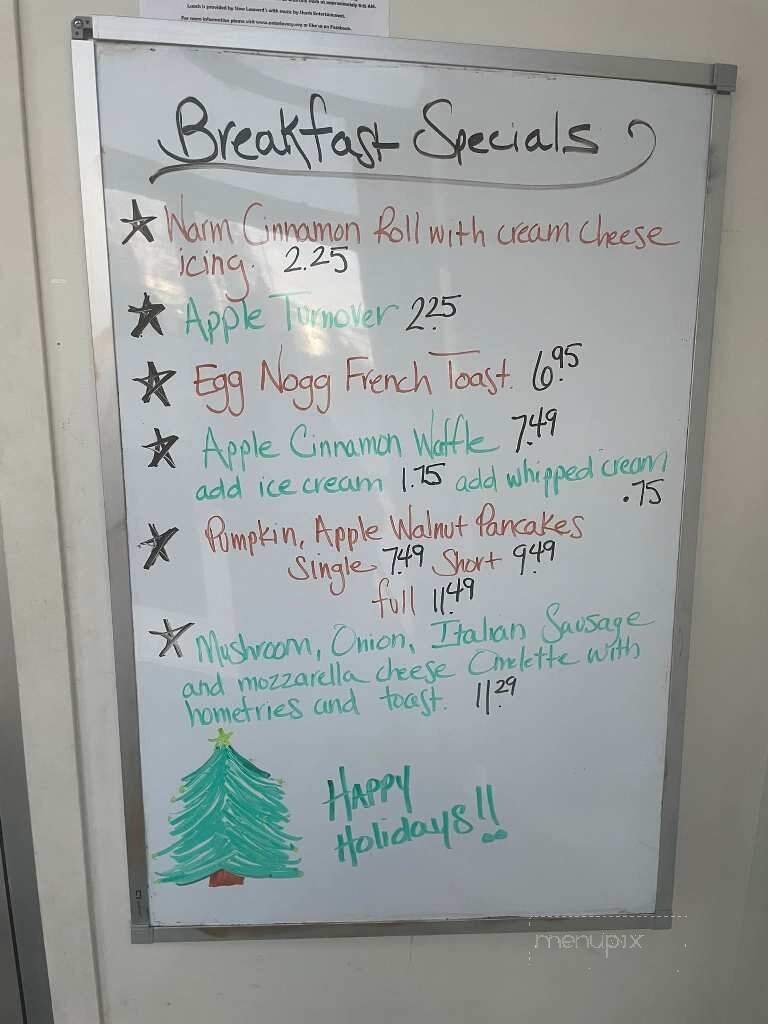 Lunch is provided by New Leonard's with music by Hearts Entertainment.
For more information please visit www.
or like us on Facebook.
Breakfast Specials
Warm Cinnamon Roll with cream cheese
icing. 2.25
Apple Turnover 2.25
Egg Nogg French Toast. 6.95
Apple Cinnamon Waffle 7.49
add ice cream 1.75 add whipped cream
.75
Pumpkin, Apple Walnut Pancakes
Single 7.49 Short 9.49
full 11.49
Mushroom, Onion, Italian Sausage
and mozzarella cheese Omelette with
homefries and toast. 11.29
Happy
Holidays!!
menupix